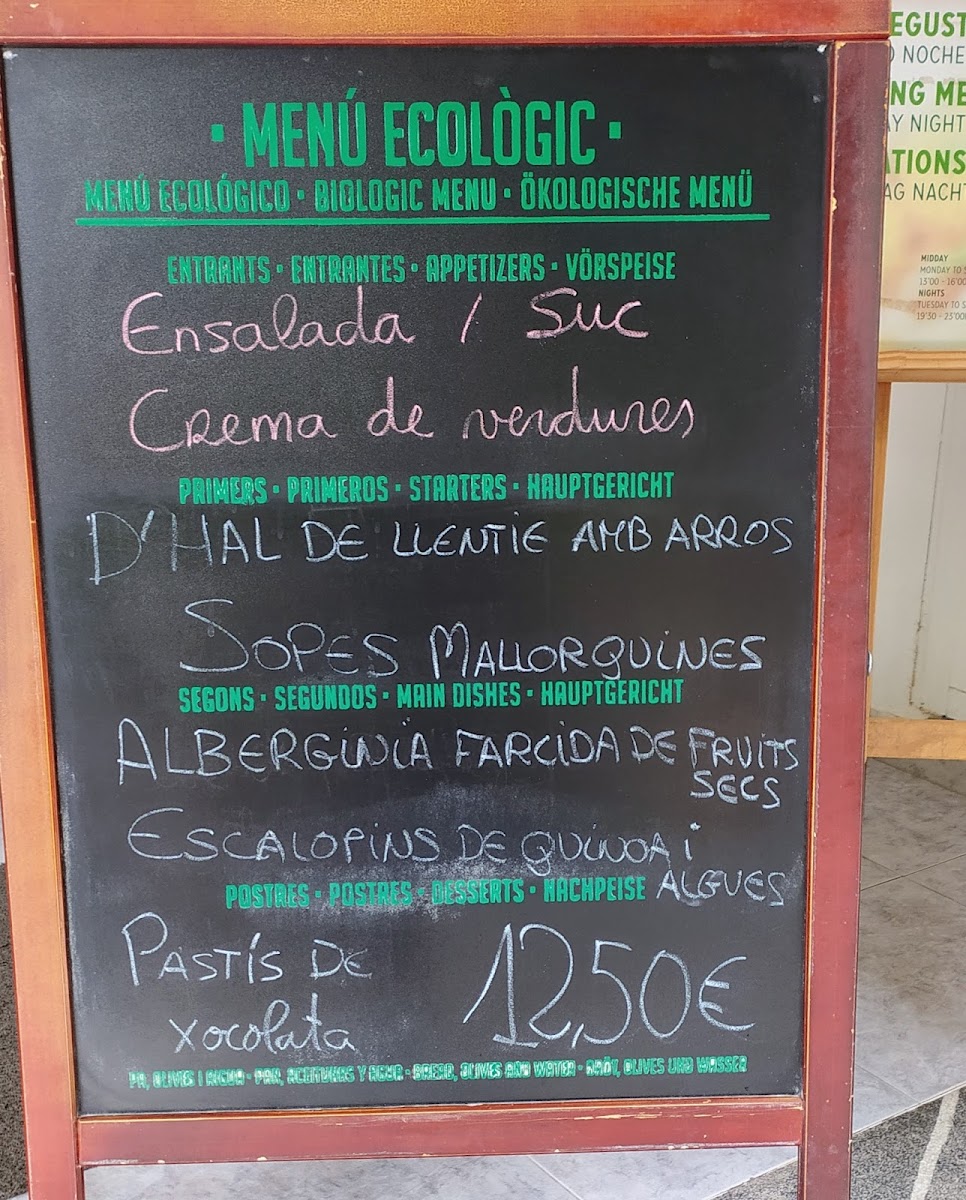 · MENÚ ECOLÒGIC ·
MENÚ ECOLÓGICO · BIOLOGIC MENU · ÖKOLOGISCHE MENÜ
ENTRANTS · ENTRANTES · APPETIZERS · VÖRSPEISE
Ensalada / Suc
Crema de verdures
PRIMERS · PRIMEROS · STARTERS · HAUPTGERICHT
D'HAL DE LLENTIE AMB ARROS
SOPES MALLORQUINES
SEGONS · SEGUNDOS · MAIN DISHES · HAUPTGERICHT
ALBERGINIA FARCIDA DE FRUITS
SECS
ESCALOPINS DE QUINOA i
ALGUES
POSTRES · POSTRES · DESSERTS · NACHPEISE
PASTÍS DE
xocolata
12,50€
PA, OLIVES I AIGUA · PAN, ACEITUNAS Y AGUA · BREAD, OLIVES AND WATER · BRÖT, OLIVES UND WASSER
EGUST
NOCHE
NG ME
AY NIGHT
ATIONS
AG NACHT
MIDDAY
MONDAY TO S
13'00 - 16'00
NIGHTS
TUESDAY TO S
19'30 - 23'00